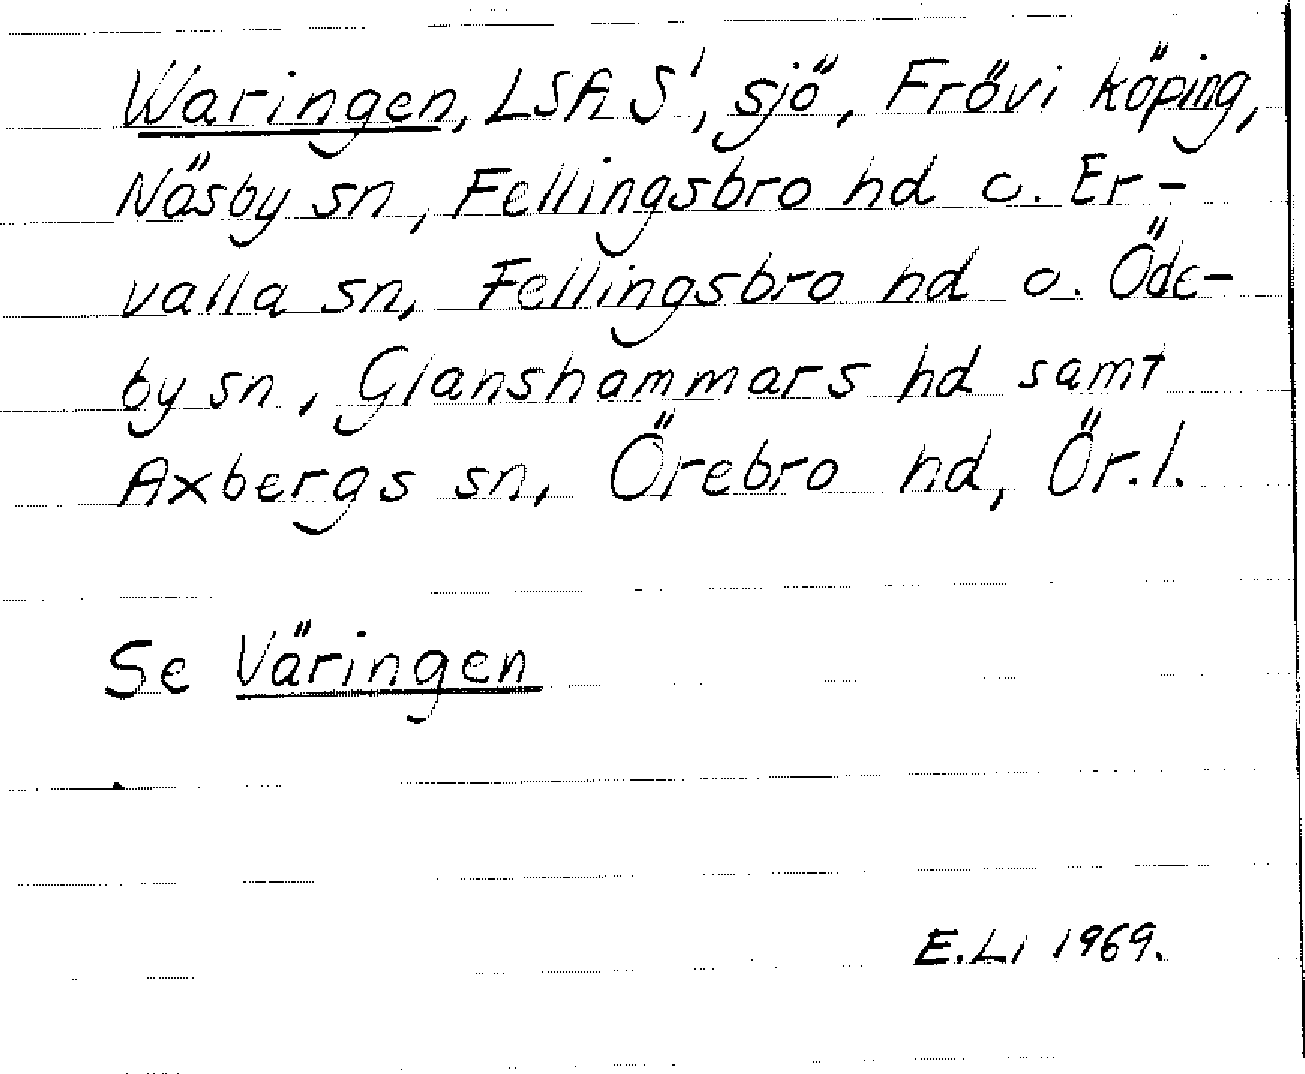 Waringen, LSA S¹, sjö, Frövi köping,
Näsby sn, Fellingsbro hd o. Er-
valla sn, Fellingsbro hd o. Öde-
by sn, Glanshammars hd samt
Axbergs sn, Örebro hd, Ör.l.
Se Väringen
E.Li 1969.